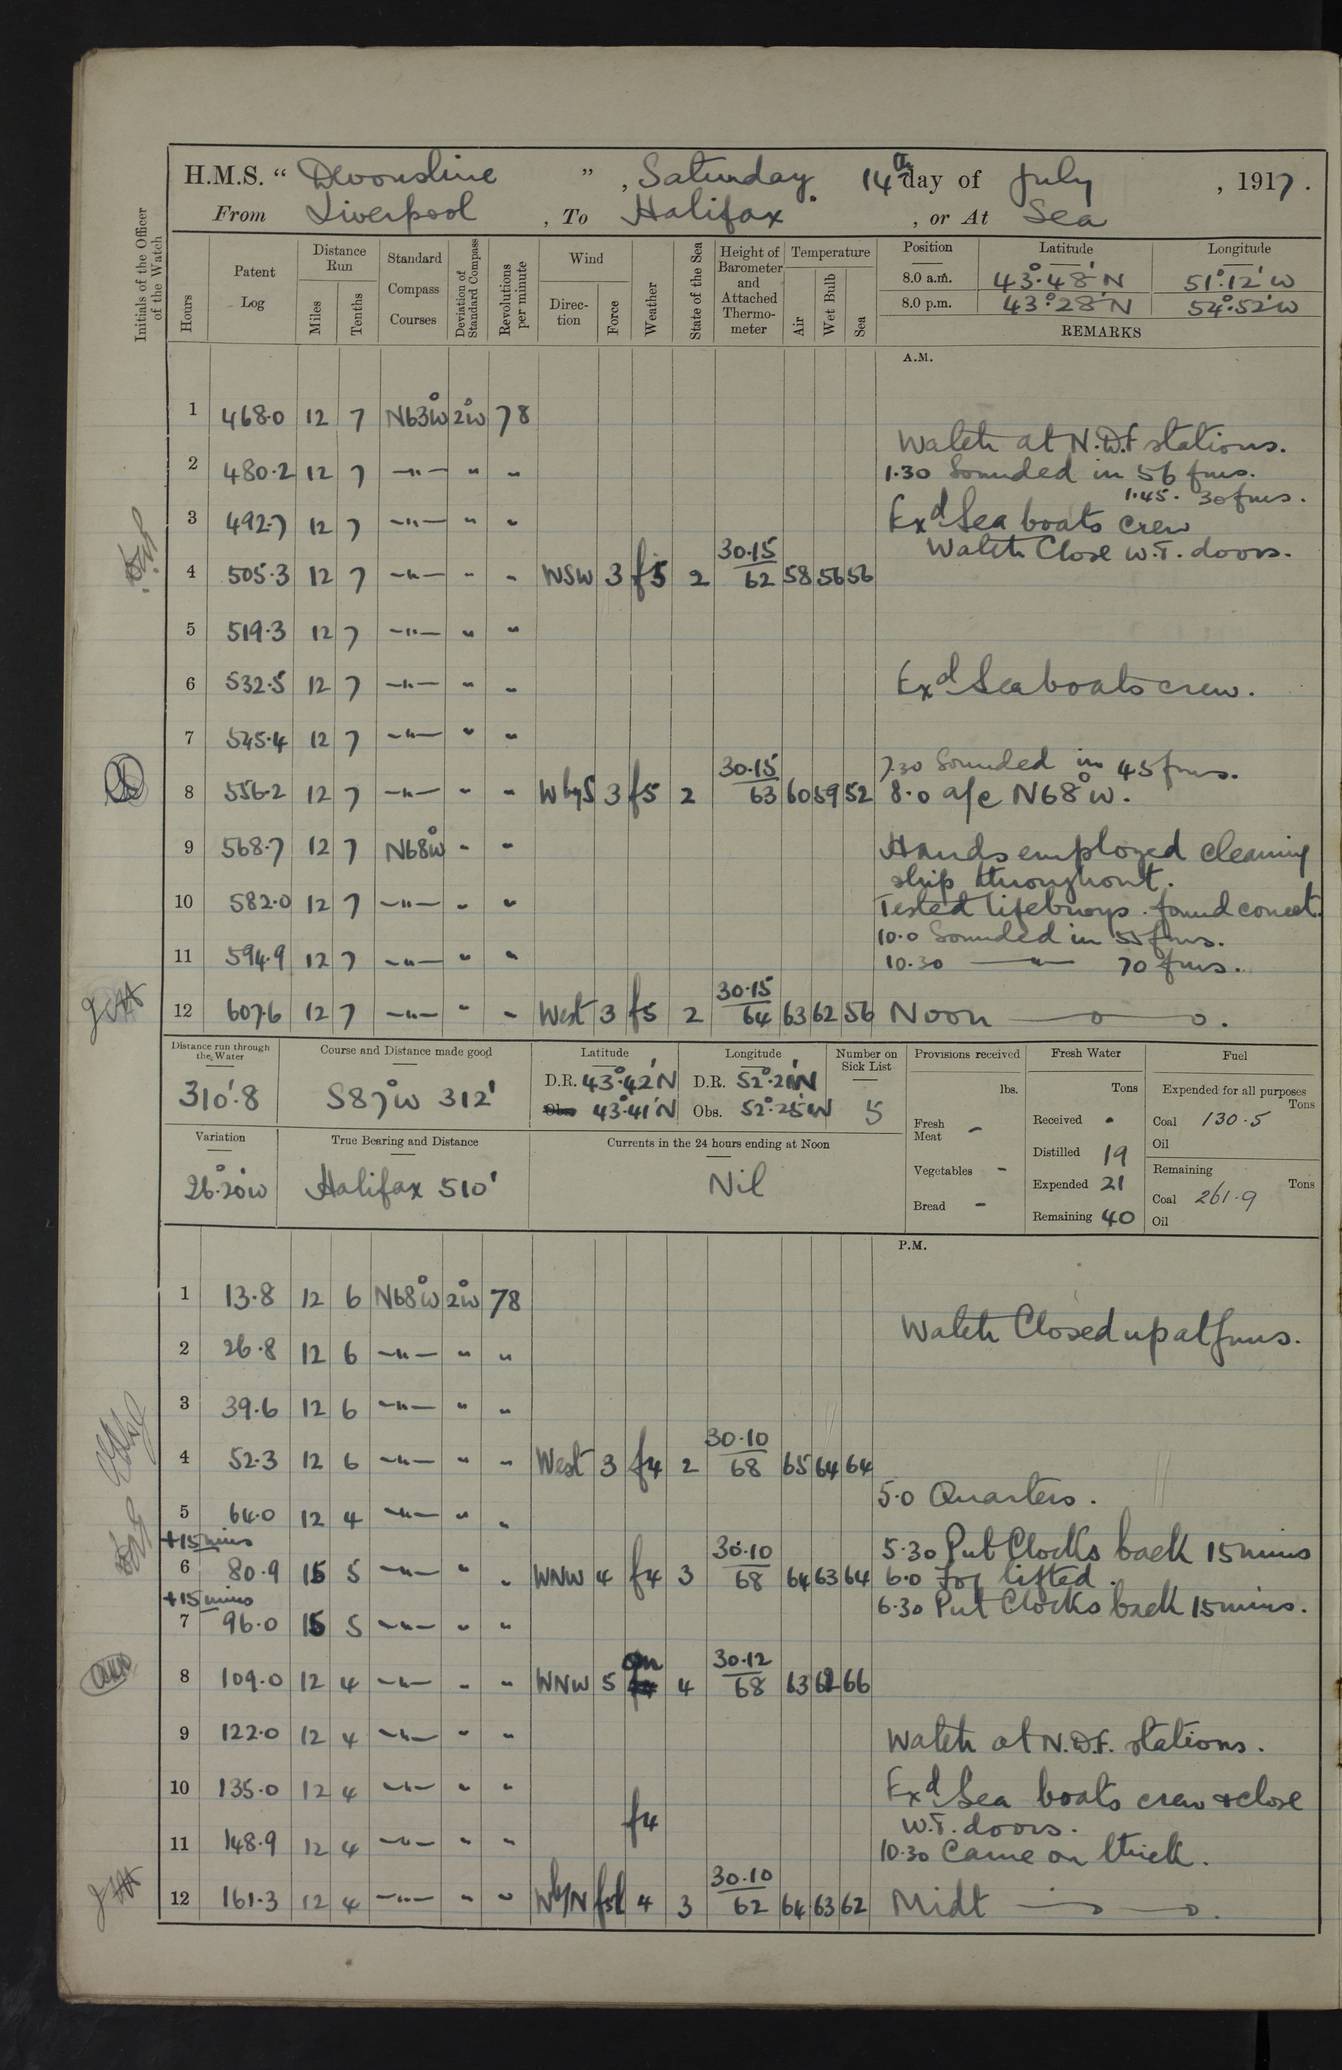 H.M.S. “ Devonshire ” , Saturday. 14th day of July , 1917.
From Liverpool , To Halifax , or At Sea
Initials of the Officer of the Watch
Hours Patent Log Distance Run Miles Tenths Standard Compass Courses Deviation of Standard Compass Revolutions per minute Wind Direc-tion Force Weather State of the Sea Height of Barometer and Attached Thermo-meter Temperature Air Wet Bulb Sea Position Latitude Longitude
8.0 a.m. 43°.48'N 51°.12'W
8.0 p.m. 43°.28'N 54°.52'W
REMARKS
A.M.
1 468.0 12 7 N63°W 2°W 78
Watch at N.D.F stations.
2 480.2 12 7 -"- " "
1.30 Sounded in 56 fms.
1.45. 30 fms.
3 492.7 12 7 -"- " "
Exd Sea boats crew
Watch Close W.T. doors.
4 505.3 12 7 -"- " " WSW 3 f5 2 30.15 62 58 56 56
5 519.3 12 7 -"- " "
6 532.5 12 7 -"- " " Exd Sea boats crew.
7 545.4 12 7 -"- " "
7.30 Sounded in 45 fms.
8 556.2 12 7 -"- " " W by S 3 f5 2 30.15 63 60 59 52 8.0 a/c N68°W.
9 568.7 12 7 N68°W " " Hands employed cleaning
ship throughout.
10 582.0 12 7 -"- " " Tested lifebuoys. found correct.
10.0 Sounded in 55 fms.
11 594.9 12 7 -"- " " 10.30 -"- 70 fms.
12 607.6 12 7 -"- " " West 3 f5 2 30.15 64 63 62 56 Noon
Distance run through the Water Course and Distance made good Latitude Longitude Number on Sick List Provisions received Fresh Water Fuel
310'.8 S87°W 312' D.R. 43°.42'N D.R. 52°.21'N lbs. Tons Expended for all purposes Tons
Obs 43°.41'N Obs. 52°.25'W 5 Fresh Meat - Received - Coal 130.5
Oil
Variation True Bearing and Distance Currents in the 24 hours ending at Noon Distilled 19 Remaining Tons
26°.20'W Halifax 510' Nil Vegetables - Expended 21 Coal 261.9
Bread - Remaining 40 Oil
P.M.
1 13.8 12 6 N68°W 2°W 78
Watch Closed up at guns.
2 26.8 12 6 -"- " "
3 39.6 12 6 -"- " "
4 52.3 12 6 -"- " " West 3 f4 2 30.10 68 65 64 64
5.0 Quarters.
5 64.0 12 4 -"- " "
+15 mins 5.30 Put Clocks back 15 mins
6 80.9 15 5 -"- " " WNW 4 f4 3 30.10 68 64 63 64 6.0 Fog lifted.
+15 mins 6.30 Put Clocks back 15 mins.
7 96.0 15 5 -"- " "
8 109.0 12 4 -"- " " WNW 5 om 4 30.12 68 63 62 66
9 122.0 12 4 -"- " " Watch at N.D.F. stations.
10 135.0 12 4 -"- " " Exd Sea boats crew & close
f4 W.T. doors.
11 148.9 12 4 -"- " " 10.30 Came on thick.
12 161.3 12 4 -"- " " W by N 4 3 30.10 62 64 63 62 Midt